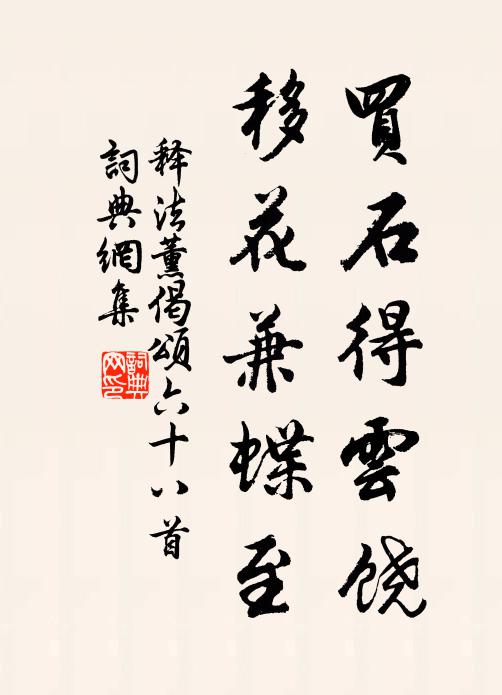 買石得雲饶
移花兼蝶至
释法薰偈頌六十八首
詞典網集
詞典网印